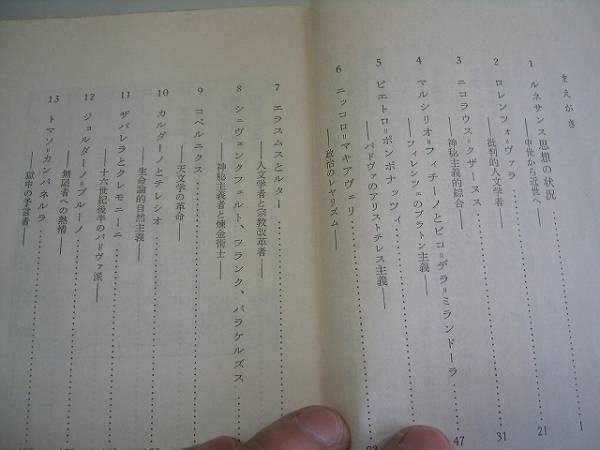 まえがき
1 ルネサンス思想の状況 1
――中世から近世へ――
2 ロレンツォ゠ヴァラ 21
――批判的人文学者――
3 ニコラウス゠クザーヌス 31
――神秘主義的綜合――
4 マルシリオ゠フィチーノとピコ゠デラ゠ミランドーラ 47
――フィレンツェのプラトン主義――
5 ピエトロ゠ポンポナッツィ
――パドヴァのアリストテレス主義――
6 ニッコロ゠マキアヴェリ
――政治のレアリズム――
7 エラスムスとルター
――人文学者と宗教改革者――
8 シュヴェンクフェルト、フランク、パラケルズス
――神秘主義者と煉金術士――
9 コペルニクス
――天文学の革命――
10 カルダーノとテレシオ
――生命論的自然主義――
11 ザバレラとクレモニーニ
――十六世紀後半のパドヴァ派――
12 ジョルダーノ゠ブルーノ
――無限者への熱情――
13 トマソ゠カンパネルラ
――獄中の予言者――